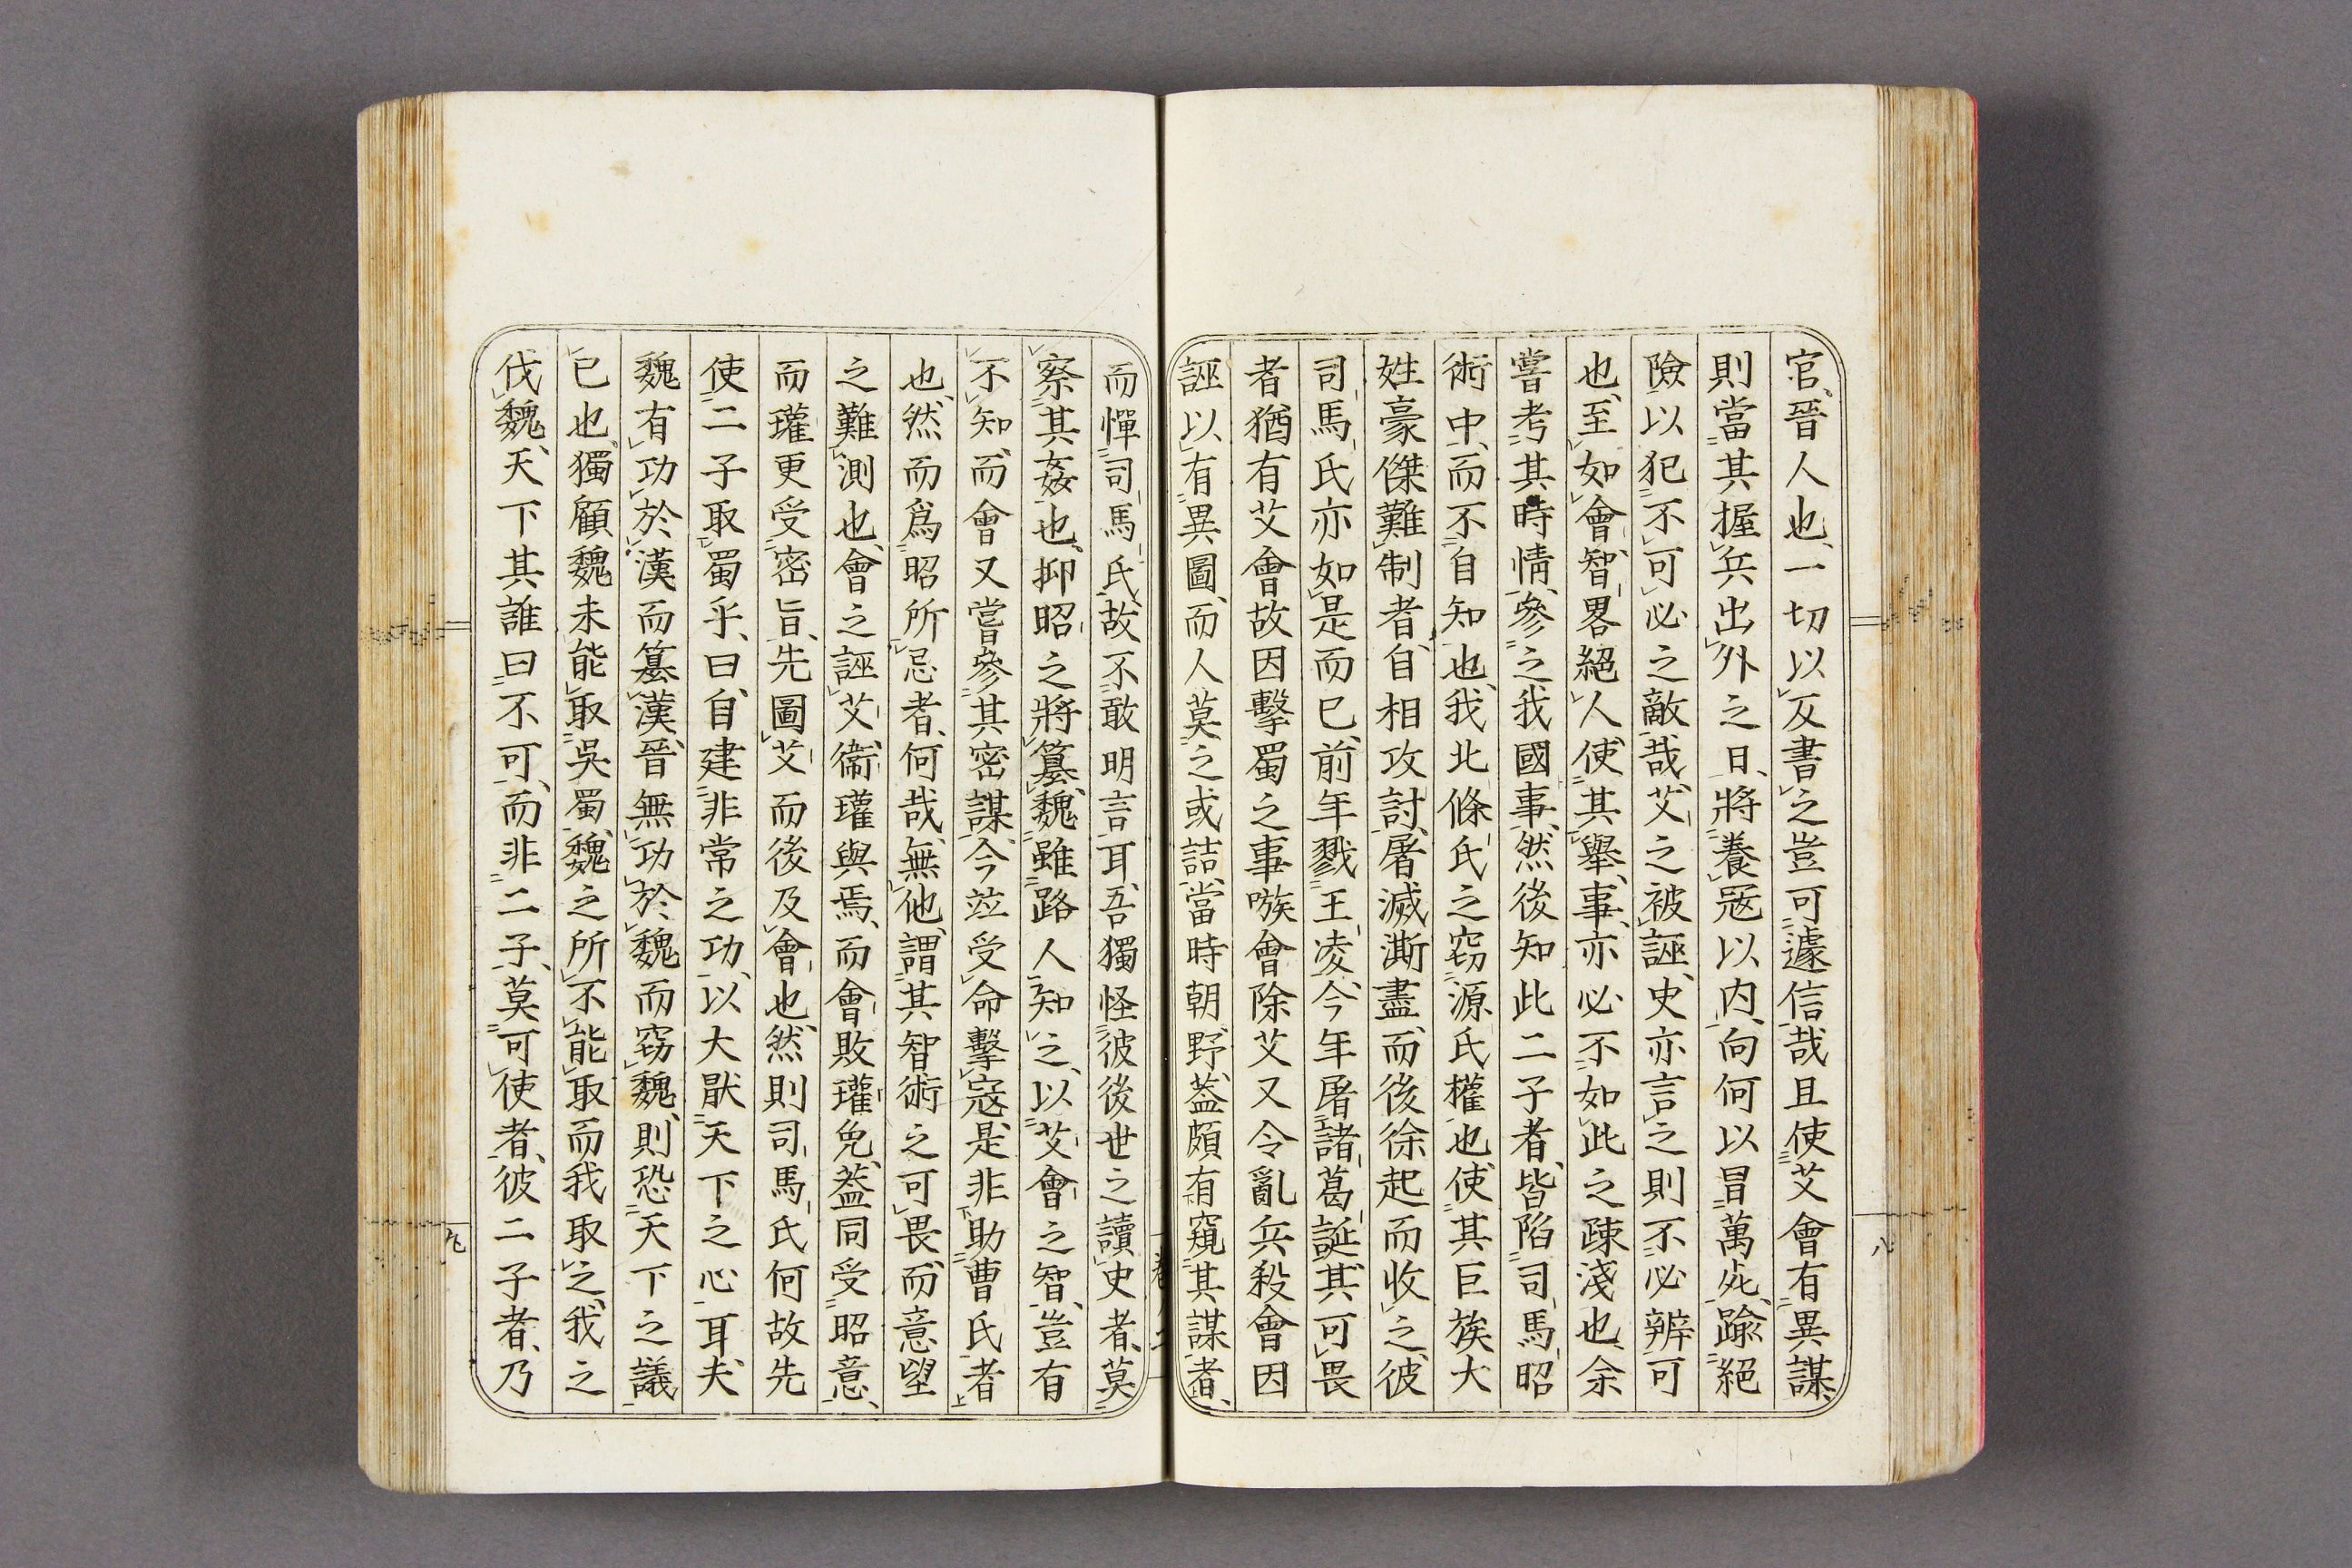 官、晉人也、一切以反書之豈可遽信哉且使艾會有異謀、
則當其握兵出外之日、將養寇以内向、何以冒萬死、踰絕
險以犯不可必之敵哉、艾之被誣、史亦言之則不必辨可
也、至如會智畧絕人、使其舉事、亦必不如此之疎淺也、余
嘗考其時情、參之我國事、然後知此二子者、皆陷司馬昭
術中、而不自知也、我北條氏之竊源氏權也、使其巨族大
姓豪傑難制者、自相攻討、屠滅澌盡、而後徐起而收之、彼
司馬氏亦如是而已、前年戮王凌、今年屠諸葛誕、其可畏
者猶有艾會故因擊蜀之事嗾會除艾又令亂兵殺會因
誣以有異圖、而人莫之或詰、當時朝野、葢頗有窺其謀者、
而憚司馬氏、故不敢明言耳、吾獨怪彼後世之讀史者、莫
察其姦也、抑昭之將簒魏、雖路人知之、以艾會之智、豈有
不知、而會又嘗參其密謀、今竝受命擊寇、是非助曹氏者
也、然而爲昭所忌者、何哉、無他、謂其智術之可畏、而意望
之難測也、會之誣艾、衞瓘與焉、而會敗瓘免、葢同受昭意、
而瓘更受密旨、先圖艾而後及會也、然則司馬氏何故先
使二子取蜀乎、曰、自建非常之功、以大厭天下之心耳夫
魏有功於漢而簒漢、晉無功於魏而竊魏、則恐天下之議
已也、獨顧魏未能取吳蜀、魏之所不能取而我取之、我之
伐魏、天下其誰曰不可、而非二子、莫可使者、彼二子者、乃
八
九